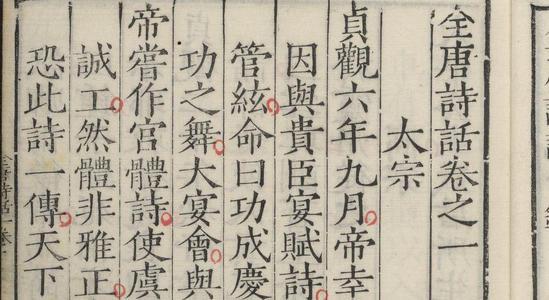 全唐詩話卷之一
太宗
貞觀六年九月帝幸
因與貴臣宴賦詩
管絃命曰功成慶
功之舞大宴會與
帝嘗作宮體詩使虞
誠工然體非雅正
恐此詩一傳天下